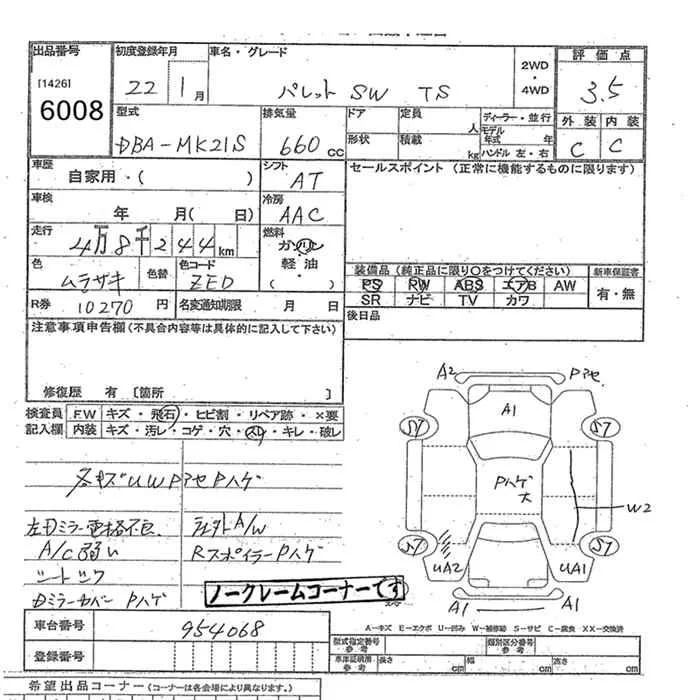 出品番号 初度登録年月 車名・グレード 評価点
[1426] 2WD
6008 22 1月 パレット SW TS ・ 3.5
4WD
型式 排気量 ドア 定員 ディーラー・並行 外装 内装
DBA-MK21S 660cc 人 モデル年式 年 C C
形状 積載 kg ハンドル 左・右
車歴 シフト セールスポイント(正常に機能するものに限ります)
自家用・( ) AT
車検 冷房
年 月( 日) AAC
走行 燃料
4万8千244km ガソリン
色 色替 色コード 軽油
ムラサキ ZED ( )
装備品(純正品に限り○をつけてください) 新車保証書
PS PW ABS エアB AW 有・無
SR ナビ TV カワ
R券 10270円 名変通知期限 月 日 後日品
注意事項申告欄(不具合内容等は具体的に記入して下さい)
修復歴 有 [箇所 ]
検査員 FW キズ・飛石・ヒビ割・リペア跡・×要
記入欄 内装 キズ・汚レ・コゲ・穴・スレ・キレ・破レ
A2 Pアセ
A1
S7 S7
Pハゲ
大
W2
S7 S7
UA2 UA1
A1 A1
各キズUWPアセPハゲ
左Dミラー電格不良 社外A/W
A/C弱い RスポイラーPハゲ
シートシワ
DミラーカバーPハゲ
ノークレームコーナーです
A-キズ E-エクボ U-凹み W-補修跡 S-サビ C-腐食 XX-交換済
車台番号 954068
登録番号
型式指定番号 参考 類別区分番号 参考
車庫証明用 参考 長さ cm 幅 cm 高さ cm
希望出品コーナー(コーナーは各会場により異なります。)